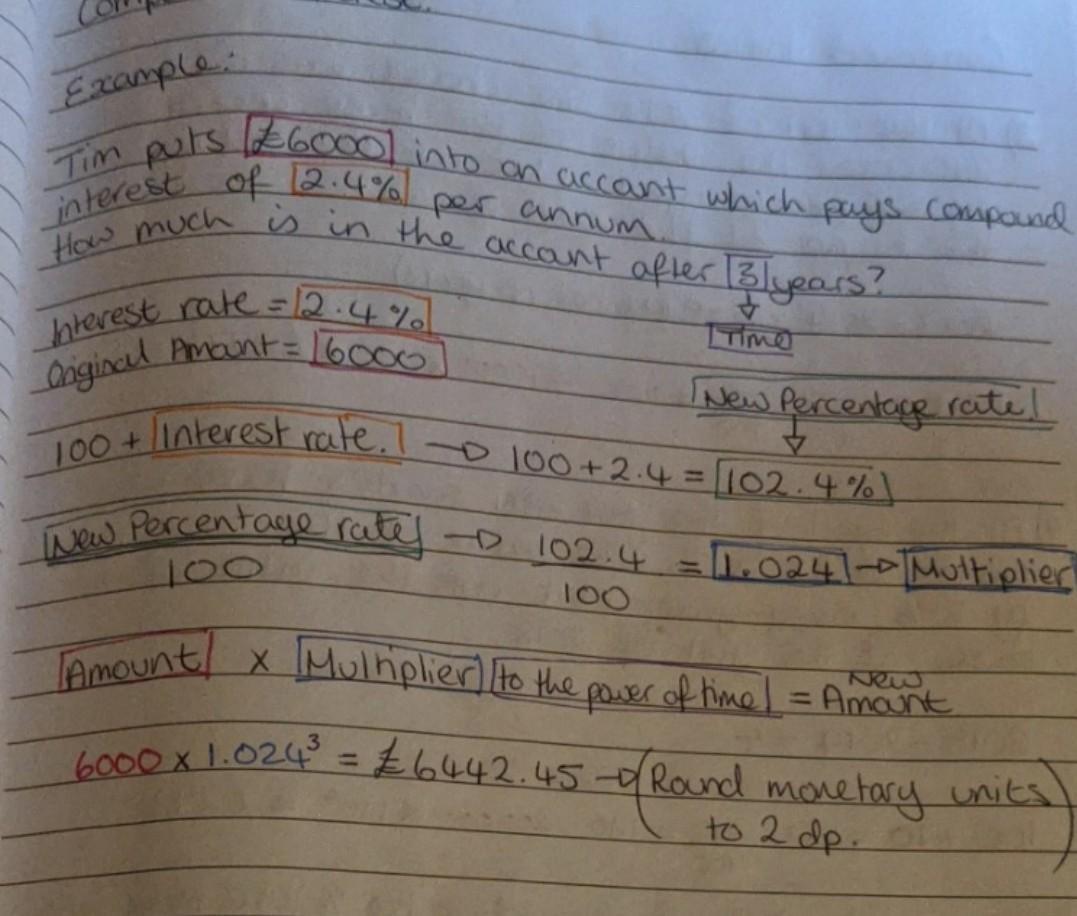 Example:
Tim puts £6000 into an accant which pays compound
interest of 2.4% per annum.
How much is in the accant after 3 years?
Time
Interest rate = 2.4%
Original Amount = 6000
New Percentage rate
100 + Interest rate. → 100 + 2.4 = 102.4%
New Percentage rate → 102.4 = 1.024 → Multiplier
100 100
Amount x Multiplier to the power of time = New Amount
6000 x 1.024³ = £6442.45 → (Round monetary units
to 2 dp.)